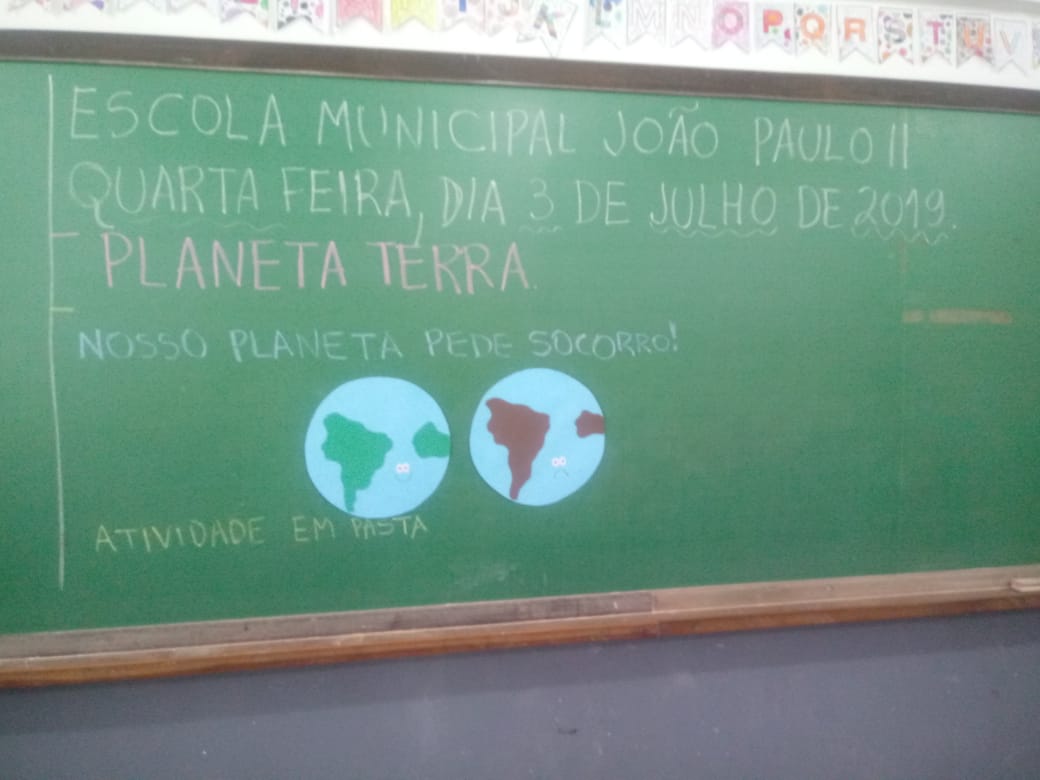 M N O P Q R S T U V
ESCOLA MUNICIPAL JOÃO PAULO II
QUARTA FEIRA, DIA 3 DE JULHO DE 2019.
PLANETA TERRA.
NOSSO PLANETA PEDE SOCORRO!
ATIVIDADE EM PASTA